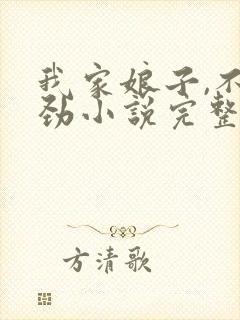 我家娘子,不
劲小说完整
方清歌